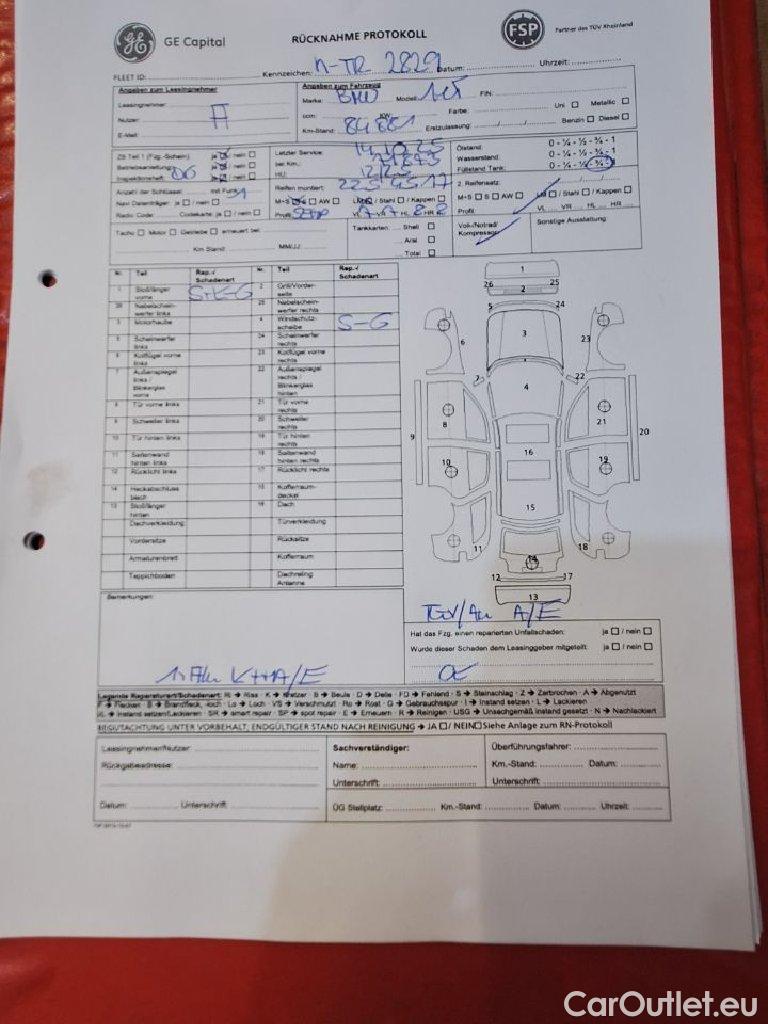 GE Capital
RÜCKNAHME PROTOKOLL
FSP
Partner des TÜV Rheinland
FLEET ID:
Kennzeichen: N-TR 2829
Datum:
Uhrzeit:
Angaben zum Leasingnehmer
Leasingnehmer:
Nutzer:
E-Mail:
Angaben zum Fahrzeug
Marke: BMW Modell: FIN:
ccm: KW: Farbe: Uni Metallic
Km-Stand: Erstzulassung: Benzin Diesel
ZB Teil 1 (Fzg.-Schein): ja / nein
Betriebsanleitung: ja / nein
Inspektionsheft: ja / nein
Anzahl der Schlüssel: mit Funk:
Navi Datenträger: ja / nein
Radio Code: Codekarte: ja / nein
Letzter Service:
bei Km.:
HU:
Reifen montiert: 225 45 17
M+S S AW LM / Stahl / Kappen
Profil: VL VR HL HR
Ölstand: 0 - ¼ - ½ - ¾ - 1
Wasserstand: 0 - ¼ - ½ - ¾ - 1
Füllstand Tank: 0 - ¼ - ½ - ¾ - 1
2. Reifensatz:
M+S S AW LM / Stahl / Kappen
Profil: VL VR HL HR
Tacho Motor Getriebe erneuert bei:
Km Stand: MM/JJ
Tankkarten: Shell
Aral
Total
Voll-/Notrad/
Kompressor
Sonstige Ausstattung:
Nr. Teil Rep.-/ Schadenart Nr. Teil Rep.-/ Schadenart
1 Stoßfänger vorne 2 Grill/Vorder-seite
26 Nebelschein-werfer links 25 Nebelschein-werfer rechts
3 Motorhaube 4 Windschutz-scheibe S-G
5 Scheinwerfer links 24 Scheinwerfer rechts
6 Kotflügel vorne links 23 Kotflügel vorne rechts
7 Außenspiegel links / Blinkerglas hinten 22 Außenspiegel rechts / Blinkerglas hinten
8 Tür vorne links 21 Tür vorne rechts
9 Schweller links 20 Schweller rechts
10 Tür hinten links 19 Tür hinten rechts
11 Seitenwand hinten links 18 Seitenwand hinten rechts
12 Rücklicht links 17 Rücklicht rechts
14 Heckabschluss blech 15 Kofferraum-deckel
13 Stoßfänger hinten 16 Dach
Dachverkleidung: Türverkleidung
Vordersitze Rücksitze
Armaturenbrett Kofferraum
Teppichboden Dachreling Antenne
1
26 2 25
5 24
6 3 23
7 22
4
8 21
9 20
16
10 19
15
11 18
14
12 17
13
Bemerkungen:
A/E
Hat das Fzg. einen reparierten Unfallschaden: ja / nein
Wurde dieser Schaden dem Leasinggeber mitgeteilt: ja / nein
Legende Reparaturart/Schadenart: RI → Riss · K → Kratzer · B → Beule · D → Delle · FD → Fehlend · S → Steinschlag · Z → Zerbrochen · A → Abgenutzt
F → Flecken · B → Brandfleck, -loch · Lo → Loch · VS → Verschmutzt · Ro → Rost · G → Gebrauchsspur · I → Instand setzen · L → Lackieren
XL → Instand setzen/Lackieren · SR → smart repair · SP → spot repair · E → Erneuern · R → Reinigen · USG → Unsachgemäß instand gesetzt · N → Nachlackiert
BEGUTACHTUNG UNTER VORBEHALT; ENDGÜLTIGER STAND NACH REINIGUNG → JA / NEIN Siehe Anlage zum RN-Protokoll
Leasingnehmer/Nutzer:
Rückgabeadresse:
Datum: Unterschrift:
Sachverständiger:
Name:
Unterschrift:
Überführungsfahrer:
Km.-Stand: Datum:
Unterschrift:
ÜG Stellplatz: Km.-Stand: Datum: Uhrzeit:
CarOutlet.eu